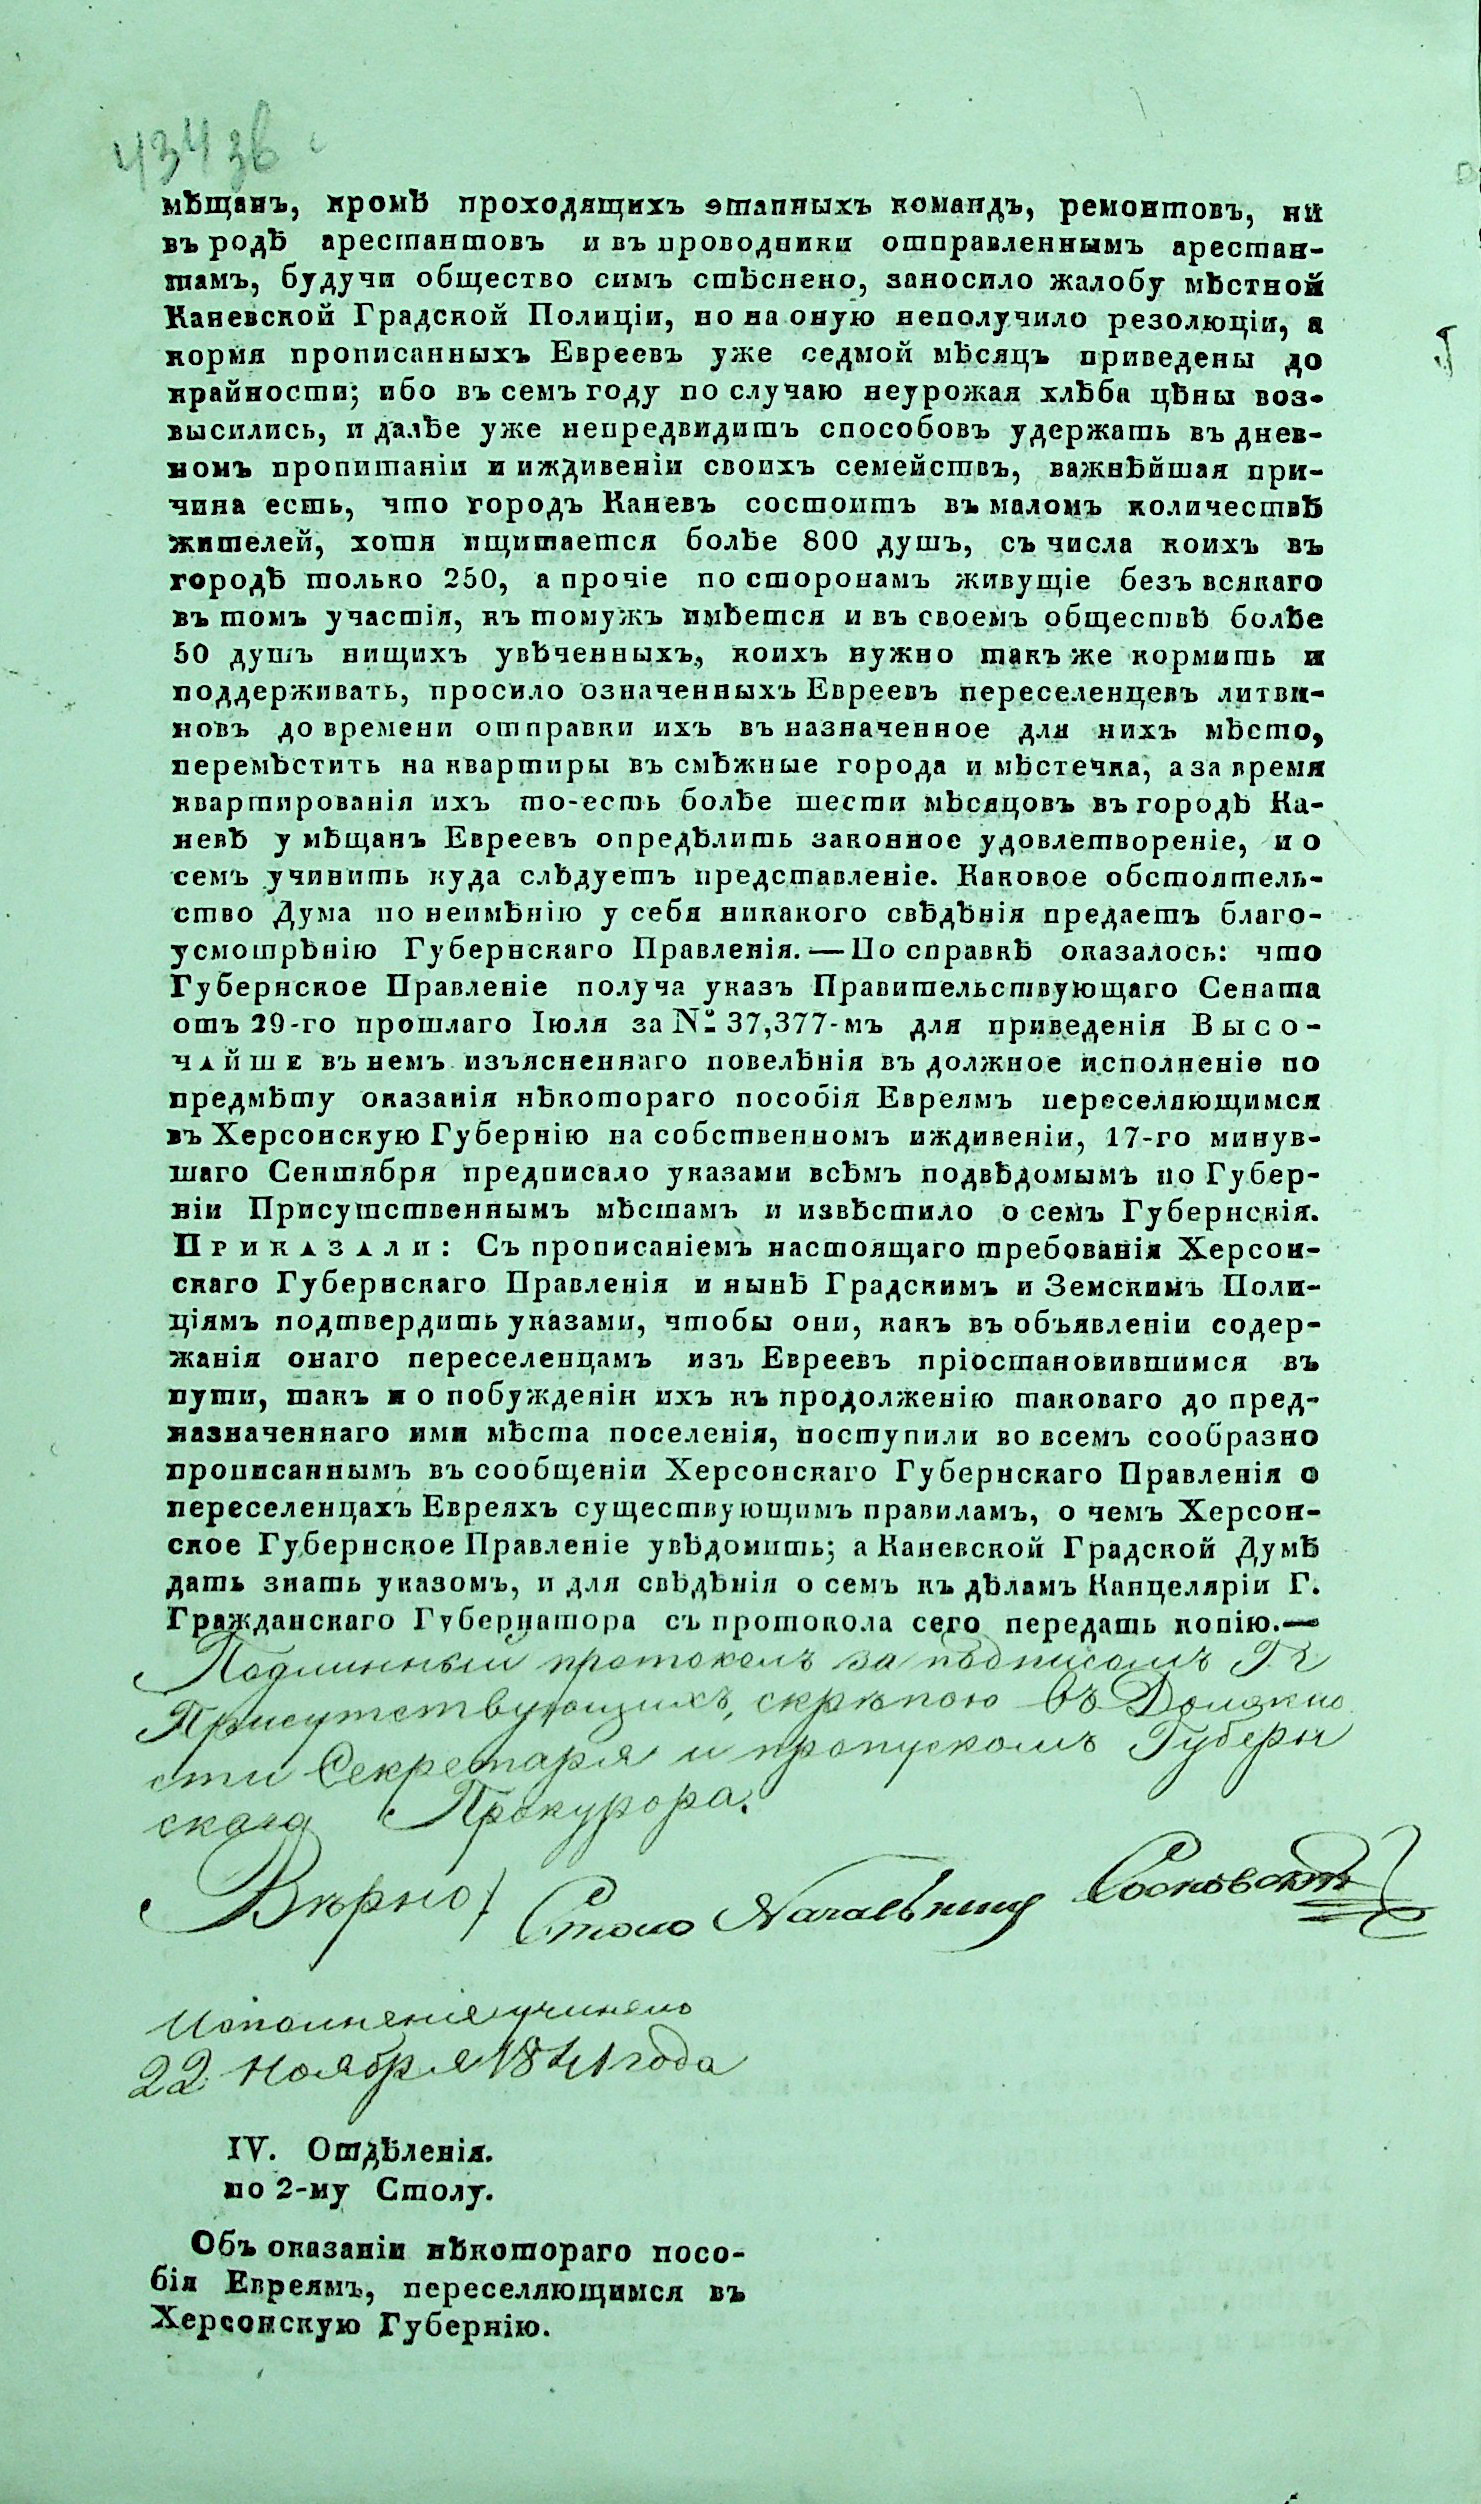 434 зв
мѣщанъ, кромѣ проходящихъ этапныхъ командъ, ремонтовъ, ни
въ родѣ арестантовъ и въ проводники отправленнымъ арестан-
тамъ, будучи общество симъ стѣснено, заносило жалобу мѣстной
Каневской Градской Полиціи, но на оную неполучило резолюціи, а
кормя прописанныхъ Евреевъ уже седмой мѣсяцъ приведены до
крайности; ибо въ семъ году по случаю неурожая хлѣба цѣны воз-
высились, и далѣе уже непредвидитъ способовъ удержать въ днев-
номъ пропитаніи и иждивеніи своихъ семействъ, важнѣйшая при-
чина есть, что городъ Каневъ состоитъ въ маломъ количествѣ
жителей, хотя ищитается болѣе 800 душъ, съ числа коихъ въ
городѣ только 250, а прочіе по сторонамъ живущіе безъ всякаго
въ томъ участія, къ томужъ имѣется и въ своемъ обществѣ болѣе
50 душъ нищихъ увѣченныхъ, коихъ нужно такъ же кормить и
поддерживать, просило означенныхъ Евреевъ переселенцевъ литви-
новъ до времени отправки ихъ въ назначенное для нихъ мѣсто,
перемѣстить на квартиры въ смѣжные города и мѣстечка, а за время
квартированія ихъ то-есть болѣе шести мѣсяцовъ въ городѣ Ка-
невѣ у мѣщанъ Евреевъ опредѣлить законное удовлетвореніе, и о
семъ учинить куда слѣдуетъ представленіе. Каковое обстоятель-
ство Дума по неимѣнію у себя никакого свѣдѣнія предаетъ благо-
усмотрѣнію Губернскаго Правленія.—По справкѣ оказалось: что
Губернское Правленіе получа указъ Правительствующаго Сената
отъ 29-го прошлаго Іюля за № 37,377-мъ для приведенія Высо-
чайше въ немъ изъясненнаго повелѣнія въ должное исполненіе по
предмѣту оказанія нѣкотораго пособія Евреямъ переселяющимся
въ Херсонскую Губернію на собственномъ иждивеніи, 17-го минув-
шаго Сентября предписало указами всѣмъ подвѣдомымъ по Губер-
ніи Присутственнымъ мѣстамъ и извѣстило о семъ Губернскія.
Приказали: Съ прописаніемъ настоящаго требованія Херсон-
скаго Губернскаго Правленія и нынѣ Градскимъ и Земскимъ Поли-
ціямъ подтвердить указами, чтобы они, какъ въ объявленіи содер-
жанія онаго переселенцамъ изъ Евреевъ пріостановившимся въ
пути, такъ и о побужденіи ихъ къ продолженію таковаго до пред-
назначеннаго ими мѣста поселенія, поступили во всемъ сообразно
прописаннымъ въ сообщеніи Херсонскаго Губернскаго Правленія о
переселенцахъ Евреяхъ существующимъ правиламъ, о чемъ Херсон-
ское Губернское Правленіе увѣдомить; а Каневской Градской Думѣ
дать знать указомъ, и для свѣдѣнія о семъ къ дѣламъ Канцеляріи Г.
Гражданскаго Губернатора съ протокола сего передать копію.—
Подлинный протоколъ за подписомъ Гг
Присутствующихъ, скрѣпою въ Должно
сти Секретаря и пропускомъ Губерн
скаго Прокурора.
Вѣрно: Столо Начальникъ Сосновскій
Исполненіе учинено
22 Ноября 1841 года
IV. Отдѣленія.
по 2-му Столу.
Объ оказаніи нѣкотораго посо-
бія Евреямъ, переселяющимся въ
Херсонскую Губернію.